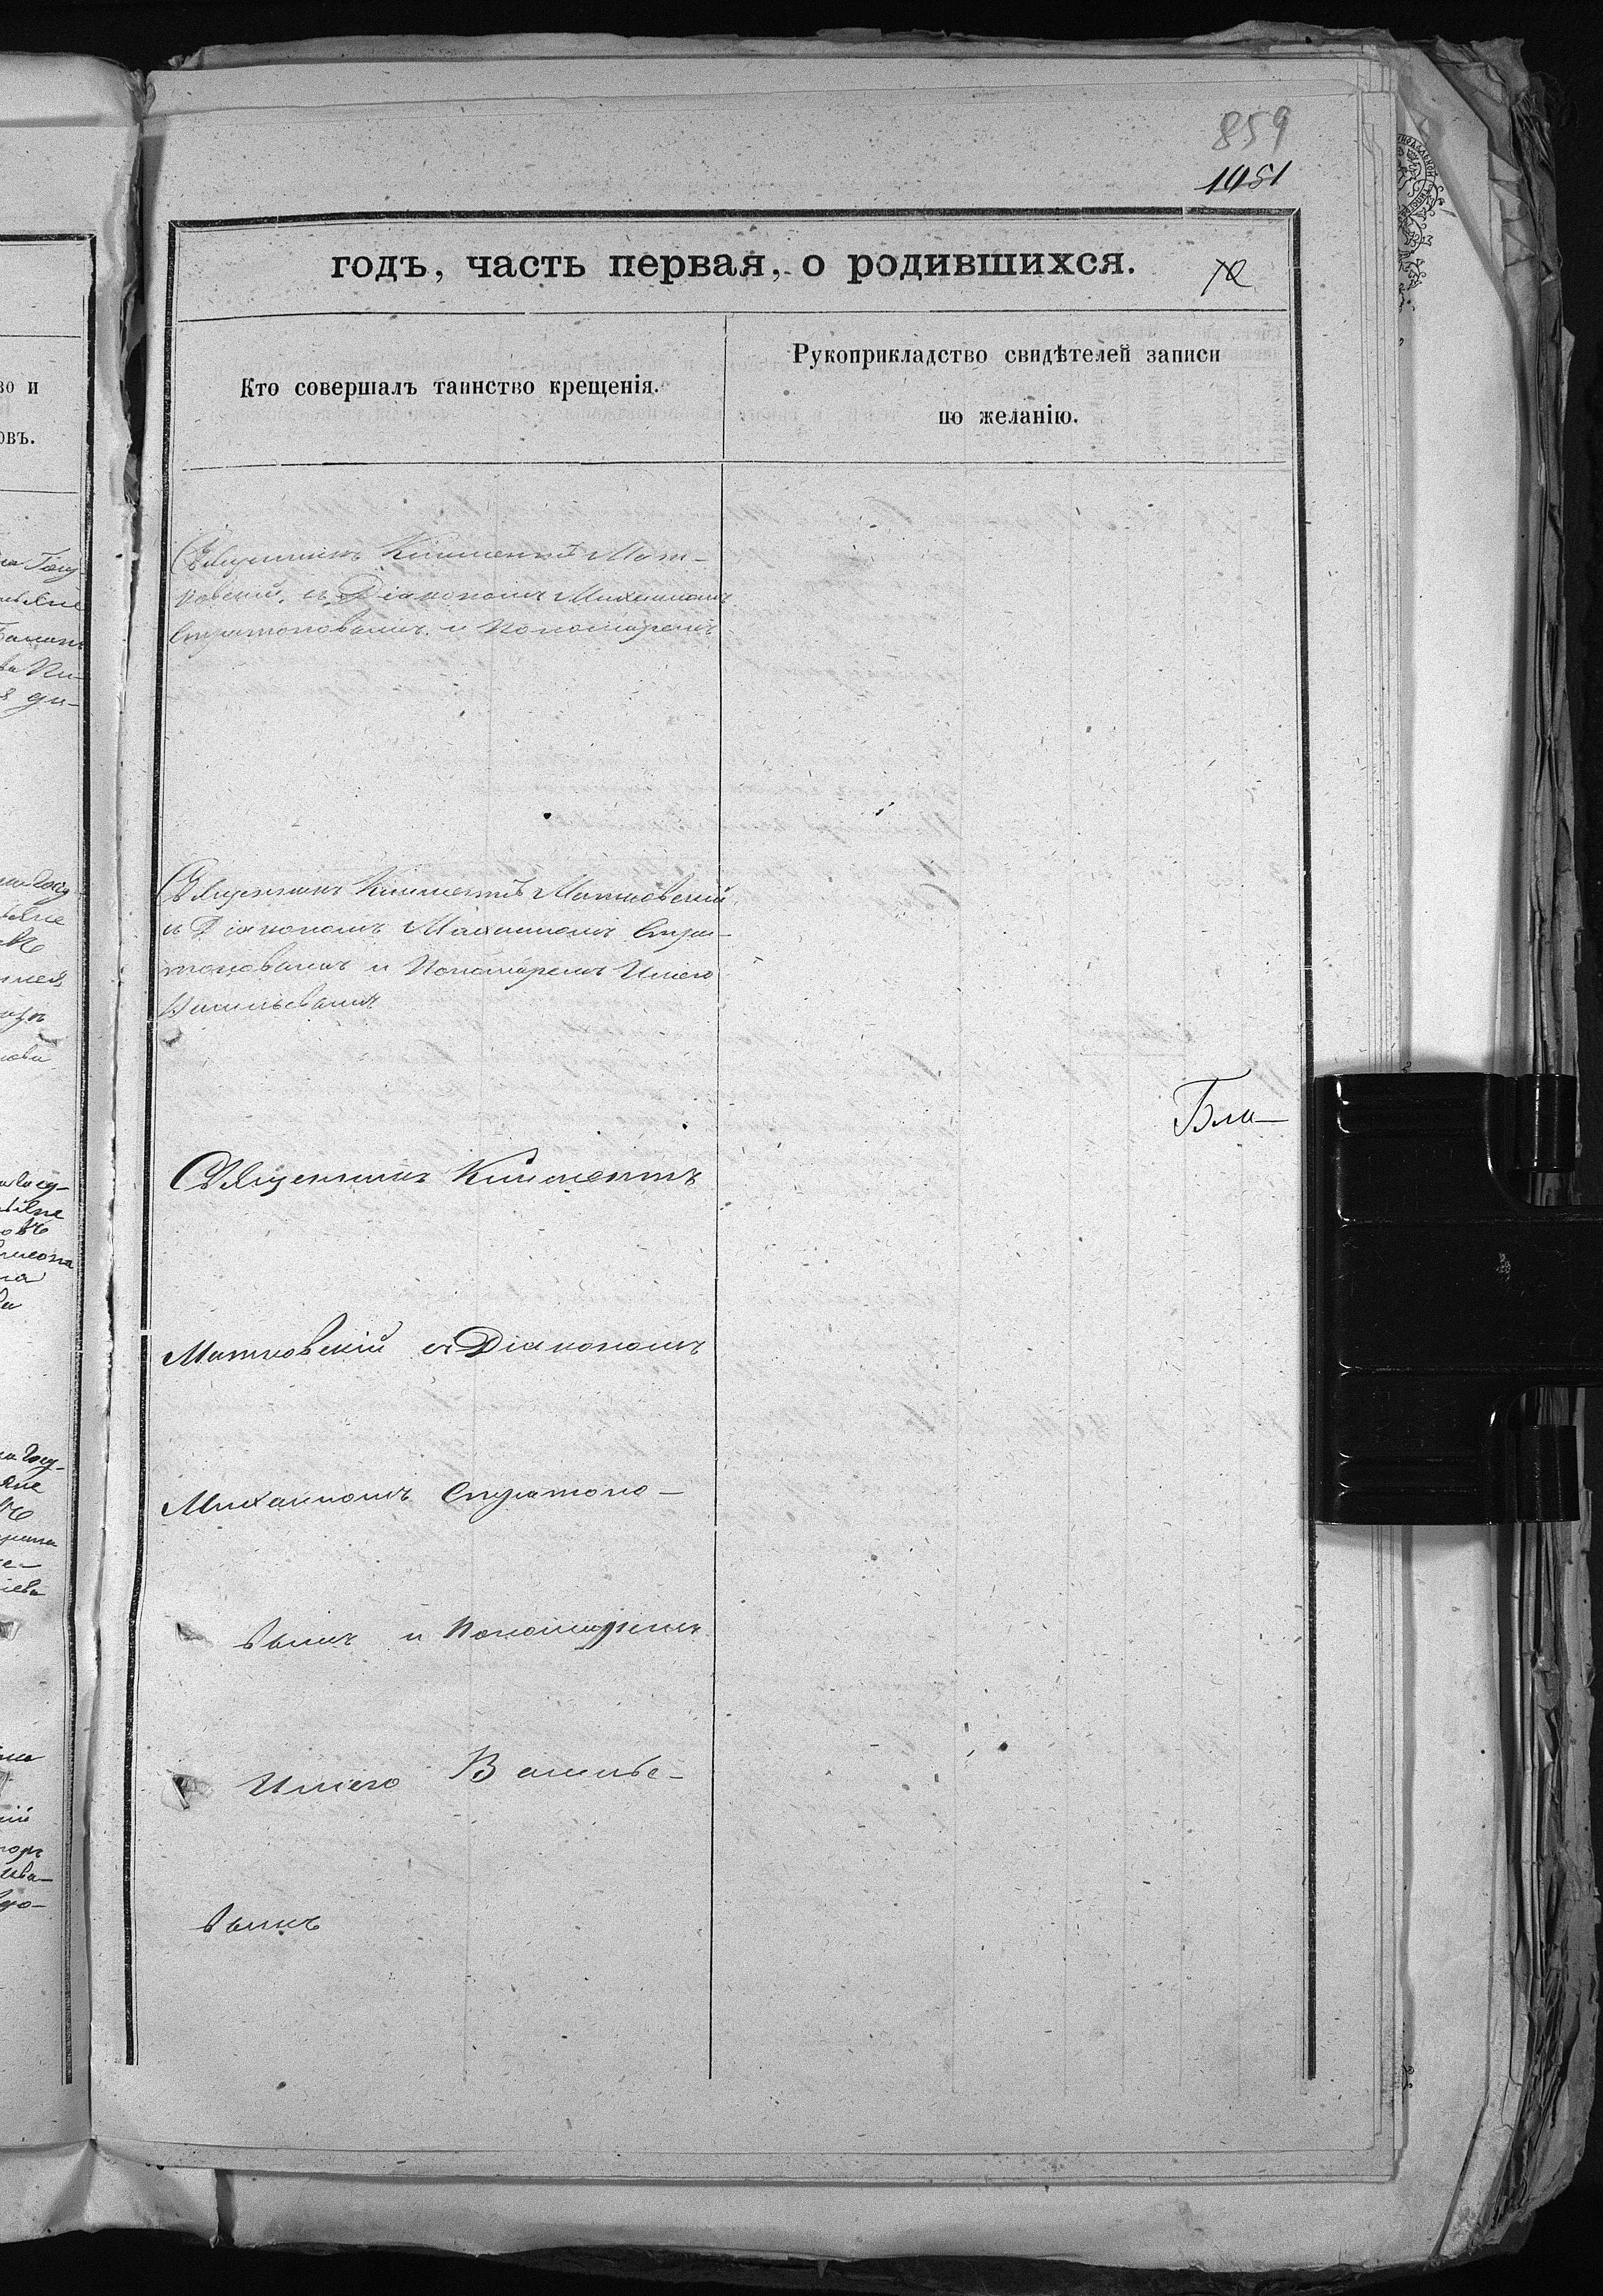 859
1051
годъ, часть первая, о родившихся.
Кто совершалъ таинство крещенія.
Рукоприкладство свидѣтелей записи
по желанію.
Священникъ Климентъ Мат-
ковскій съ Діакономъ Михаиломъ
Стратоновымъ и Пономаремъ
Священникъ Климентъ Матковскій
съ Діакономъ Михаиломъ Стра-
тоновымъ и Пономаремъ Иліею
Васильевымъ
Бла-
Священникъ Климентъ
Матковскій съ Діакономъ
Михаиломъ Стратоно-
вымъ и Пономаремъ
Иліею Василье-
вымъ